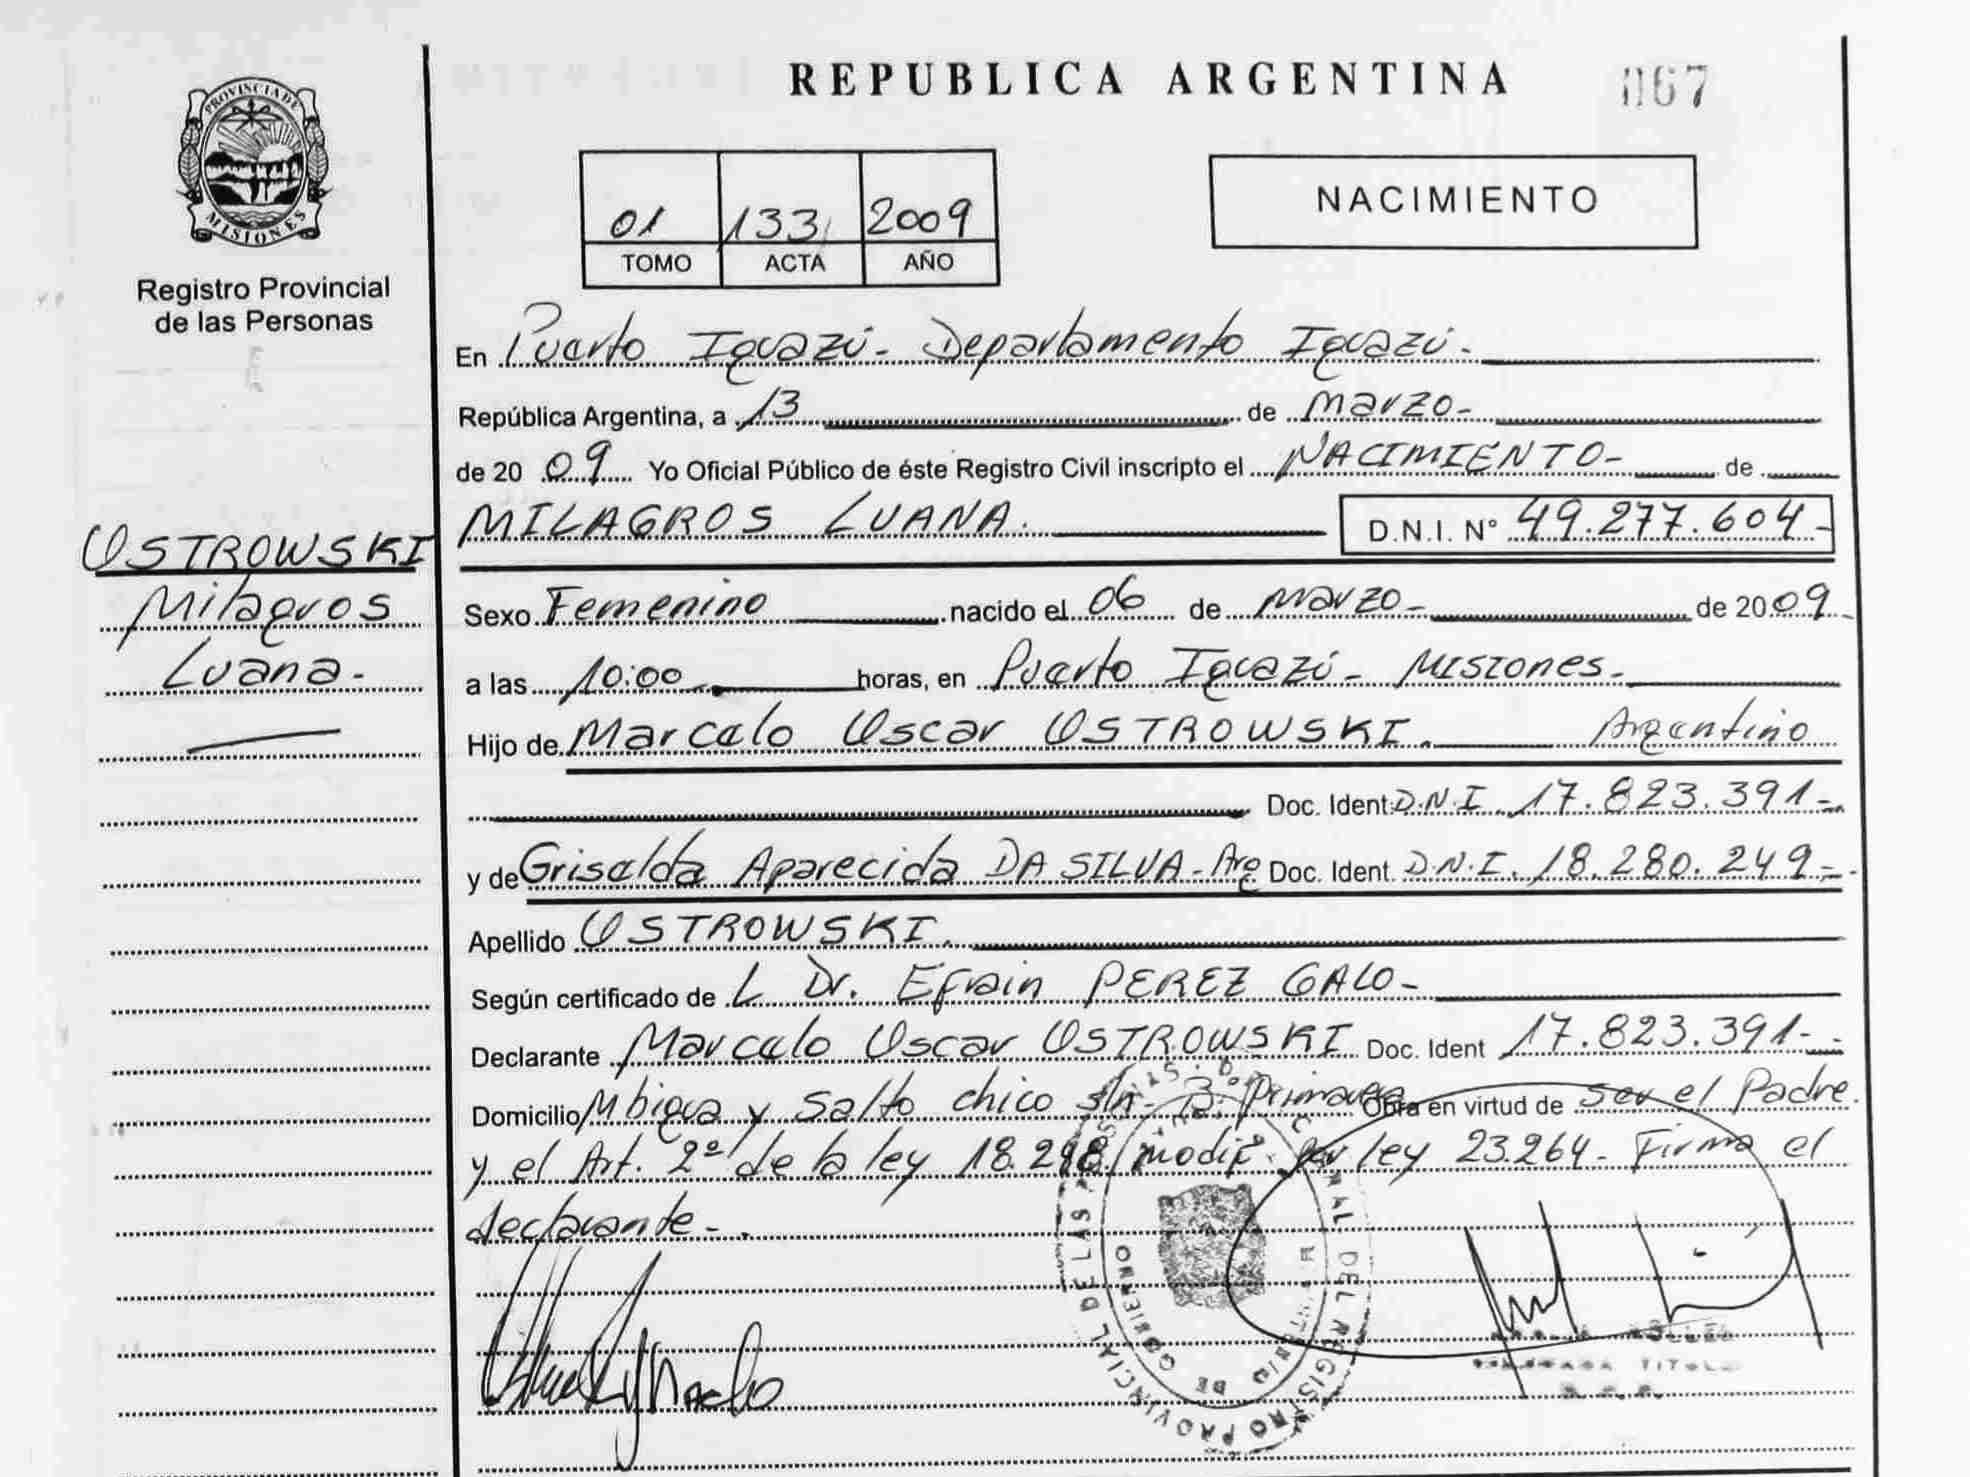 REPUBLICA ARGENTINA
067
PROVINCIA DE
MISIONES
Registro Provincial
de las Personas
01 133 2009
TOMO ACTA AÑO
NACIMIENTO
En Puerto Iguazú- Departamento Iguazú-
República Argentina, a 13 de marzo-
de 20 09 Yo Oficial Público de éste Registro Civil inscripto el NACIMIENTO- de
MILAGROS LUANA. D.N.I. N° 49.277.604-
OSTROWSKI
Milagros
Luana-
Sexo Femenino nacido el 06 de marzo- de 2009
a las 10:00 horas, en Puerto Iguazú- MISIONES-
Hijo de Marcelo Oscar OSTROWSKI. Argentino
Doc. Ident. D.N.I. 17.823.391-
y de Griselda Aparecida DA SILVA- Arg Doc. Ident. D.N.I. 18.280.249-
Apellido OSTROWSKI.
Según certificado de L Dr. Efrain PEREZ GALO-
Declarante Marcelo Oscar OSTROWSKI Doc. Ident 17.823.391-
Domicilio Mbigua y Salto chico s/n- Obra en virtud de ser el Padre
y el Art. 2º de la ley 18.248 modif. por ley 23.264- Firma el
declarante-
REGISTRO PROVINCIAL DE LAS
GOBIERNO
DE